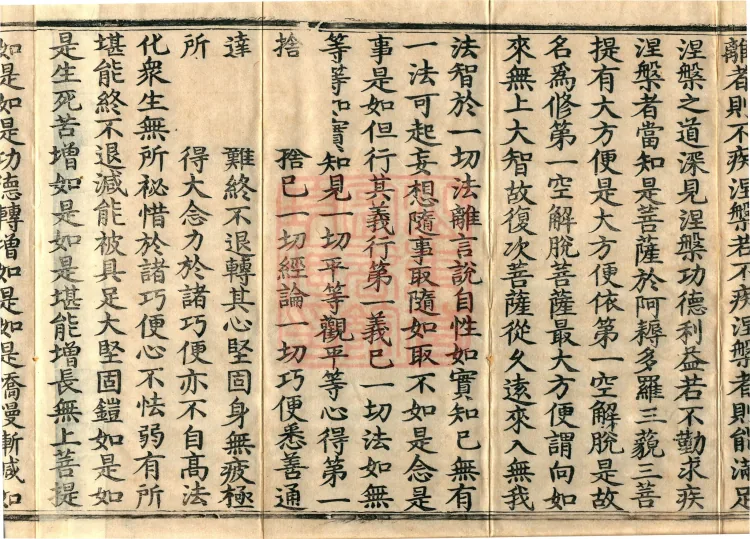 離者則不疾涅槃若不疾涅槃者則能滿足
涅槃之道深見涅槃功德利益若不勤求疾
涅槃者當知是菩薩於阿耨多羅三藐三菩
提有大方便是大方便依第一空解脫是故
名爲修第一空解脫菩薩最大方便謂向如
來無上大智故復次菩薩從久遠來入無我
法智於一切法離言說自性如實知已無有
一法可起妄想隨事取隨如取不如是念是
事是如但行其義行第一義已一切法如無
等等如實知見一切平等觀平等心得第一
捨　捨已一切經論一切巧便悉善通
達　難終不退轉其心堅固身無疲極
所　得大念力於諸巧便亦不自髙法
化衆生無所祕惜於諸巧便心不怯弱有所
堪能終不退減能被具足大堅固鎧如是如
是生死苦增如是如是堪能增長無上菩提
如是如是功德轉增如是如是憍慢漸減如